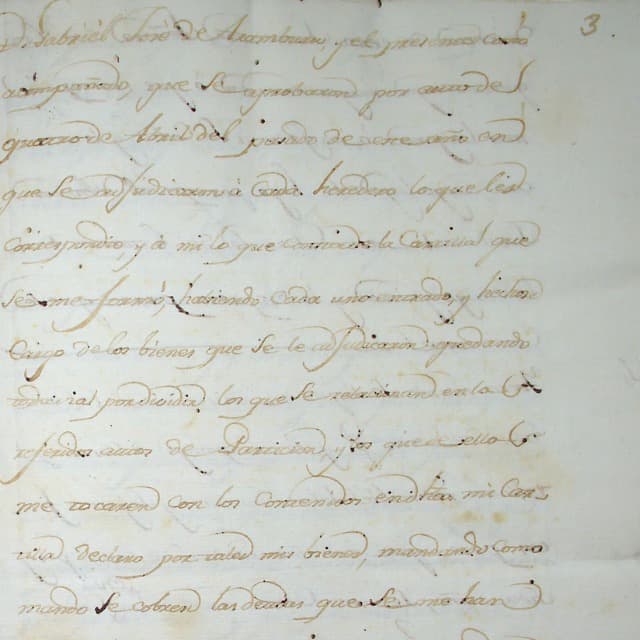 3
D. Gabriel José de Aramburu, y el presente como
acompañado, que se aprobaron por auto del
quatro de Abril del pasado de este año en
que se adjudicaron à cada heredero lo que les
y à mi lo que contiene la Carnial que
se me formò, haviendo cada uno entrado y hechose
Cargo de los bienes que se le adjudicaron quedando
por dividir los que se relacionan en la
referidos autos de Particion, y los que de ello
me tocaren con los contenidos en dha mi
declaro por tales mis bienes, mandando como
mando se cobren las deudas que se me han